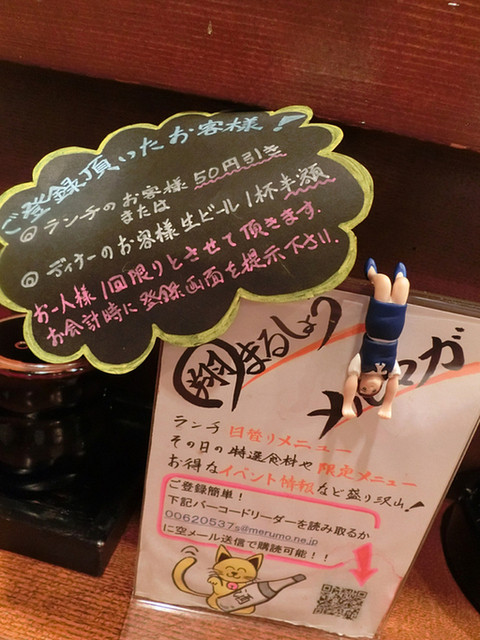 ご登録頂いたお客様！
◎ ランチのお客様 50円引き
または
◎ ディナーのお客様生ビール1杯半額
お一人様1回限りとさせて頂きます.
お会計時に登録画面を提示下さい.
翔まるしょう
メルマガ
ランチ日替りメニュー
その日の特選食材や限定メニュー
お得なイベント情報など盛り沢山！
ご登録簡単！
下記バーコードリーダーを読み取るか
00620537s@merumo.ne.jp
に空メール送信で購読可能！！